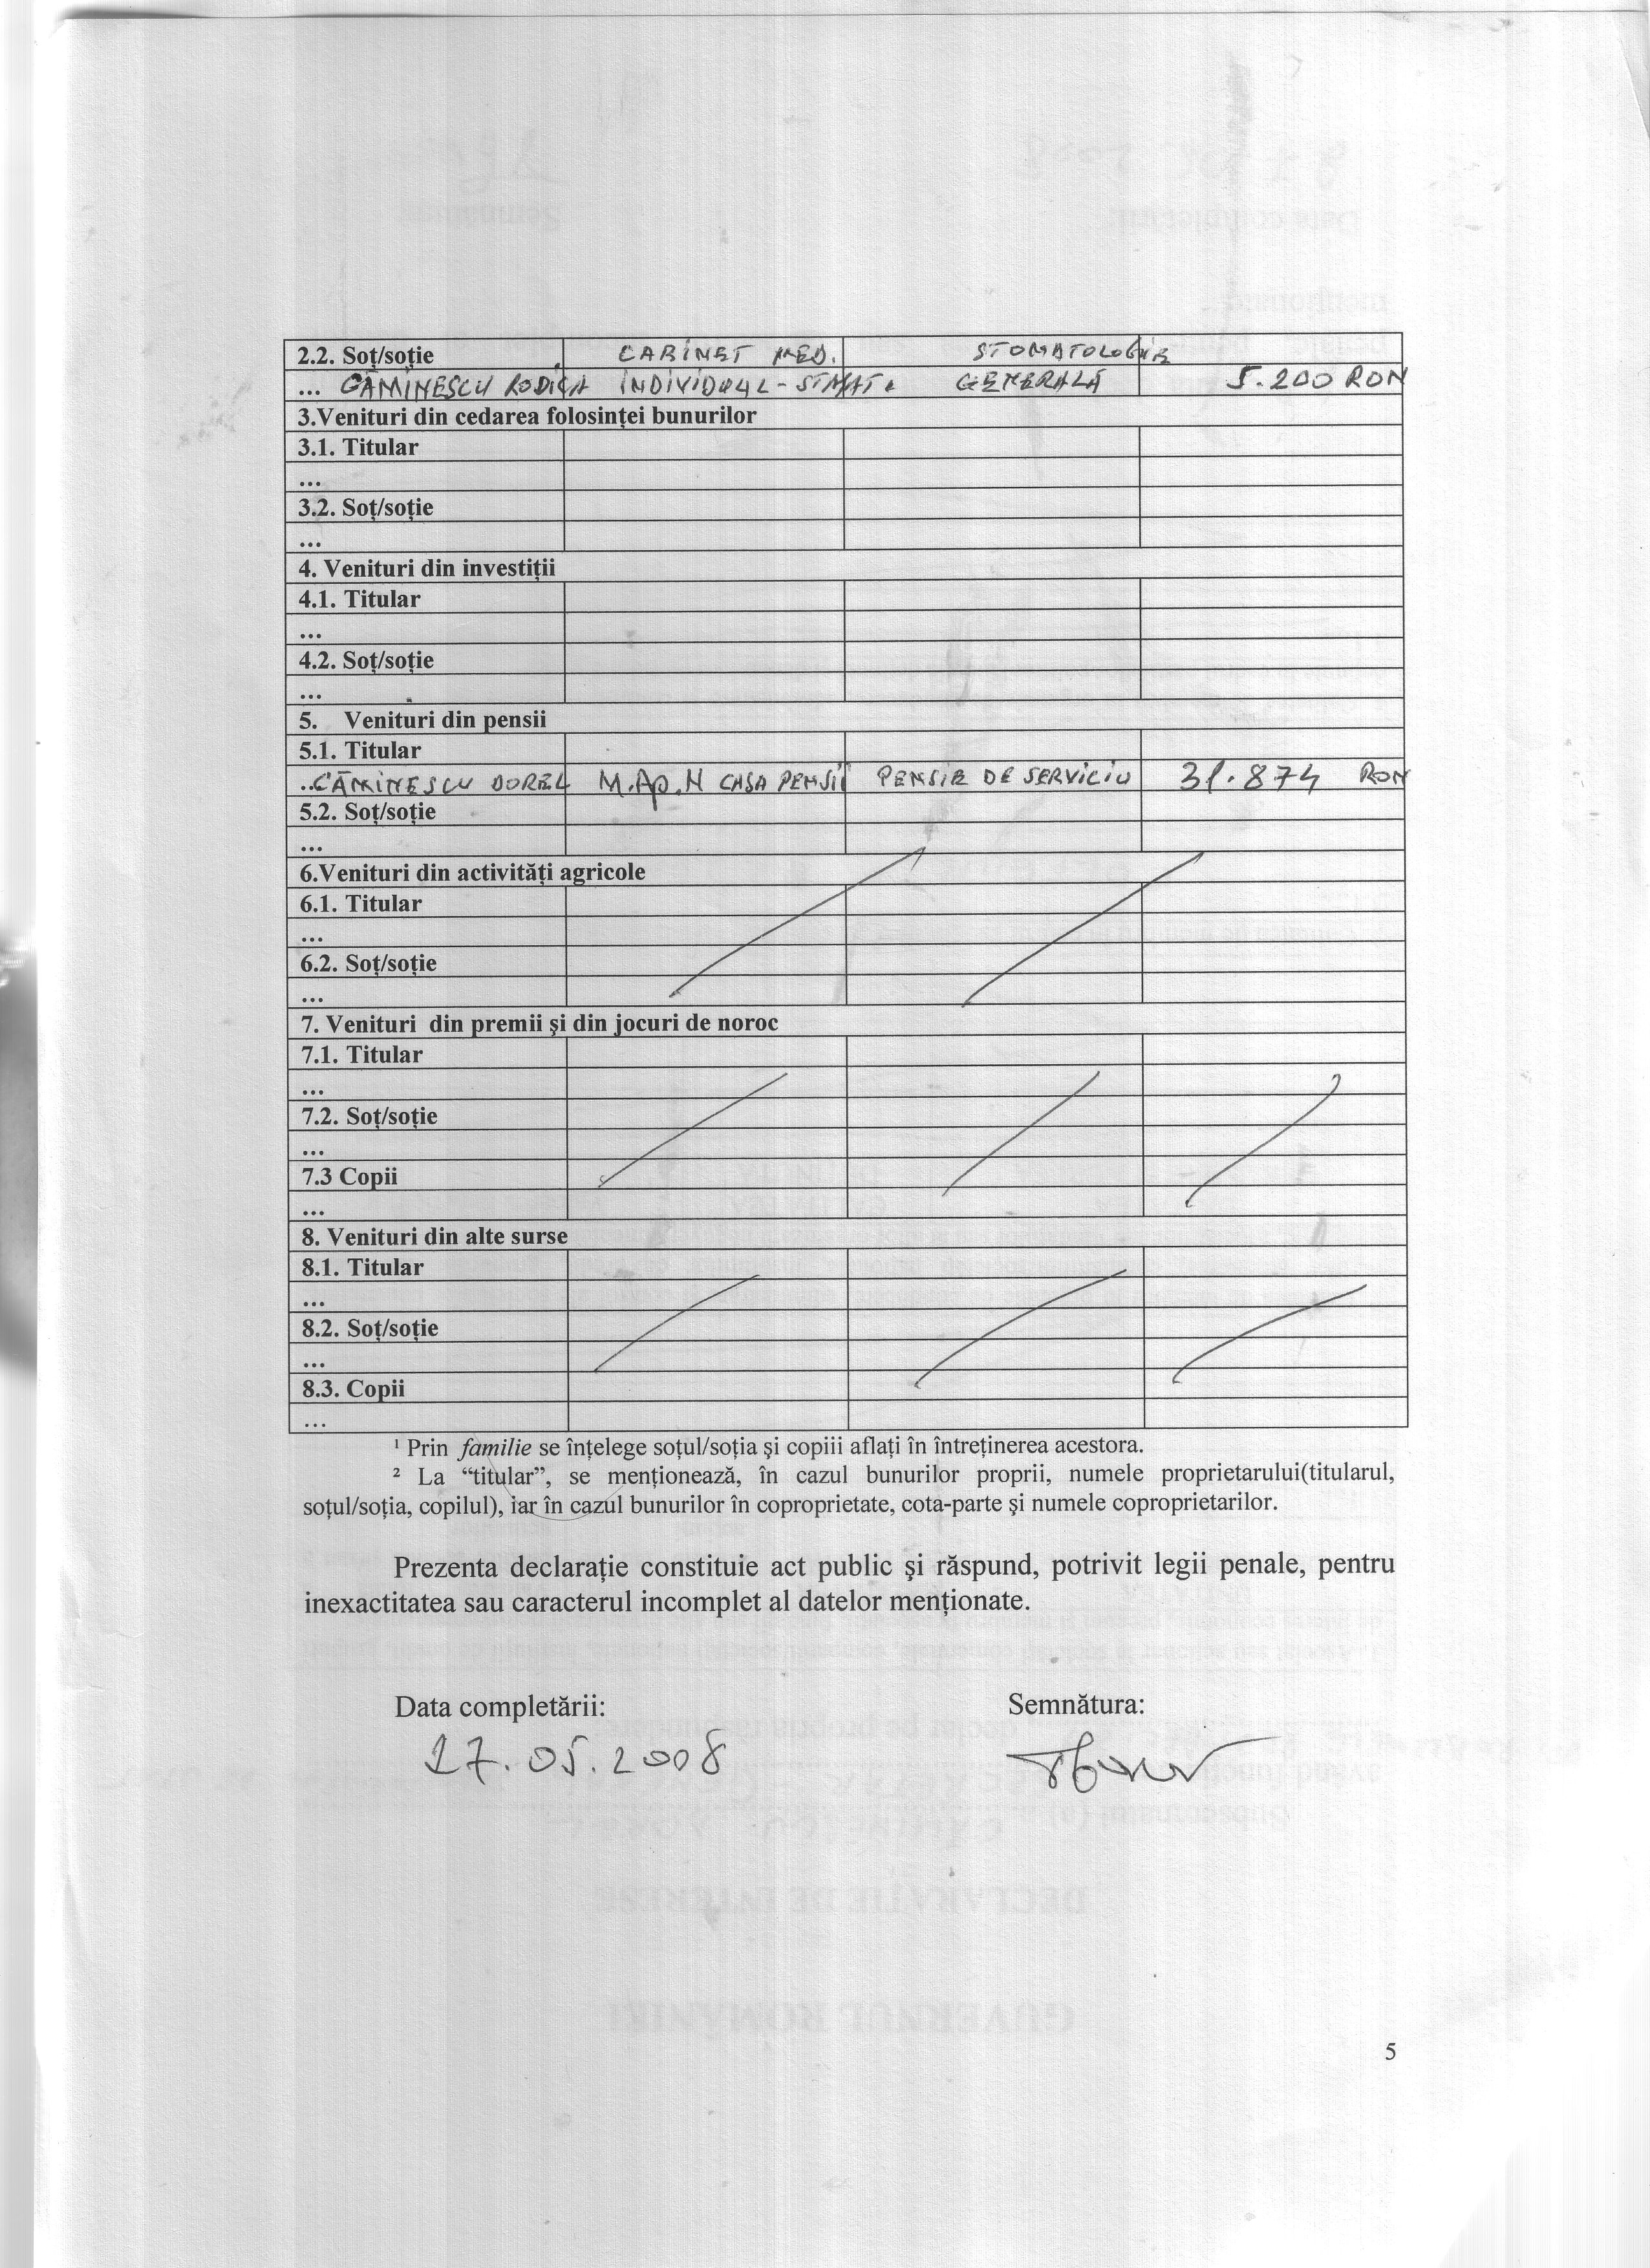 2.2. Soț/soție CABINET MED. STOMATOLOGIE
... CĂMINESCU RODICA INDIVIDUAL - STMAT. GENERALĂ 5.200 RON
3.Venituri din cedarea folosinței bunurilor
3.1. Titular
...
3.2. Soț/soție
...
4. Venituri din investiții
4.1. Titular
...
4.2. Soț/soție
...
5. Venituri din pensii
5.1. Titular
..CĂMINESCU DOREL M.Ap.N CASA PENSII PENSIE DE SERVICIU 31.874 RON
5.2. Soț/soție
...
6.Venituri din activități agricole
6.1. Titular
...
6.2. Soț/soție
...
7. Venituri din premii şi din jocuri de noroc
7.1. Titular
...
7.2. Soț/soție
...
7.3 Copii
...
8. Venituri din alte surse
8.1. Titular
...
8.2. Soț/soție
...
8.3. Copii
...
¹ Prin familie se înțelege soțul/soția şi copiii aflați în întreținerea acestora.
² La “titular”, se menționează, în cazul bunurilor proprii, numele proprietarului(titularul,
soțul/soția, copilul), iar în cazul bunurilor în coproprietate, cota-parte şi numele coproprietarilor.
Prezenta declarație constituie act public şi răspund, potrivit legii penale, pentru
inexactitatea sau caracterul incomplet al datelor menționate.
Data completării: Semnătura:
27.05.2008
5